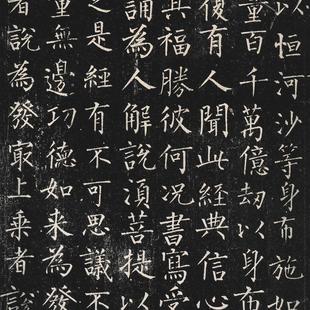 以恒河沙等身布施如
量百千萬億劫以身布
復有人聞此經典信心
其福勝彼何況書寫受
誦為人解說須菩提以
之是經有不可思議不
量無邊功德如来為發
者說為發冣上乘者說